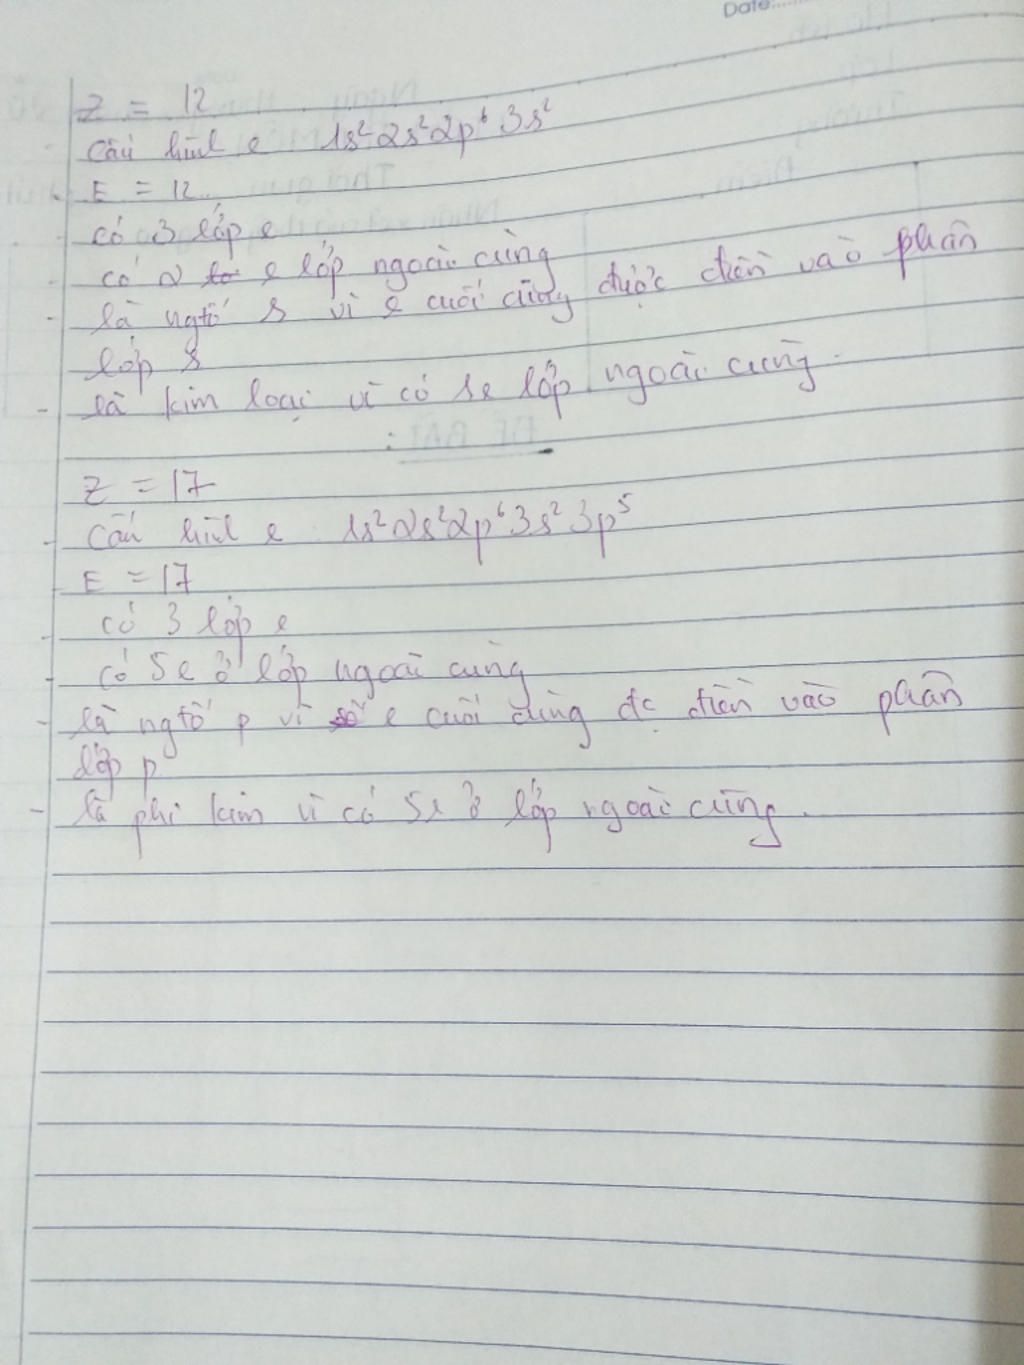 Date:
Z = 12
Cấu hình e 1s² 2s² 2p⁶ 3s²
E = 12
có 3 lớp e
có 2 e lớp ngoài cùng
- là ngtố s vì e cuối cùng được điền vào phân
lớp s
- là kim loại vì có 1e lớp ngoài cùng.
Z = 17
- Cấu hình e 1s² 2s² 2p⁶ 3s² 3p⁵
- E = 17
- có 3 lớp e
- có 5e ở lớp ngoài cùng
- là ngtố p vì e cuối cùng đc điền vào phân
lớp p
- là phi kim vì có 5e ở lớp ngoài cùng.